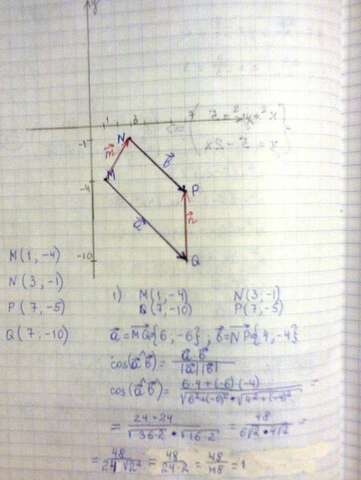 y
1 3 7
-1
N
m⃗
b⃗
-4
M
P
a⃗
n⃗
-10
Q
M(1,-4)
N(3,-1)
P(7,-5)
Q(7,-10)
1) M(1,-4) N(3,-1)
Q(7,-10) P(7,-5)
a⃗=MQ⃗{6,-6}, b⃗=NP⃗{4,-4}
cos(a⃗^b⃗)= a⃗·b⃗ / |a⃗|·|b⃗|
cos(a⃗^b⃗)= 6·4+(-6)·(-4) / √6²+(-6)² · √4²+(-4)² =
= 24+24 / √36·2 · √16·2 = 48 / 6√2·4√2 =
= 48 / 24·√2² = 48 / 24·2 = 48 / 48 = 1